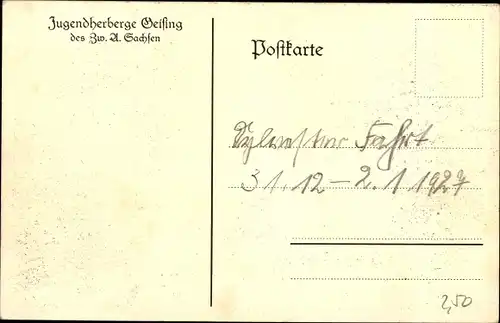 Jugendherberge Geising
des Zw. A. Sachsen
Postkarte
Sylvester Fahrt
31.12 – 2.1.1927
2,50